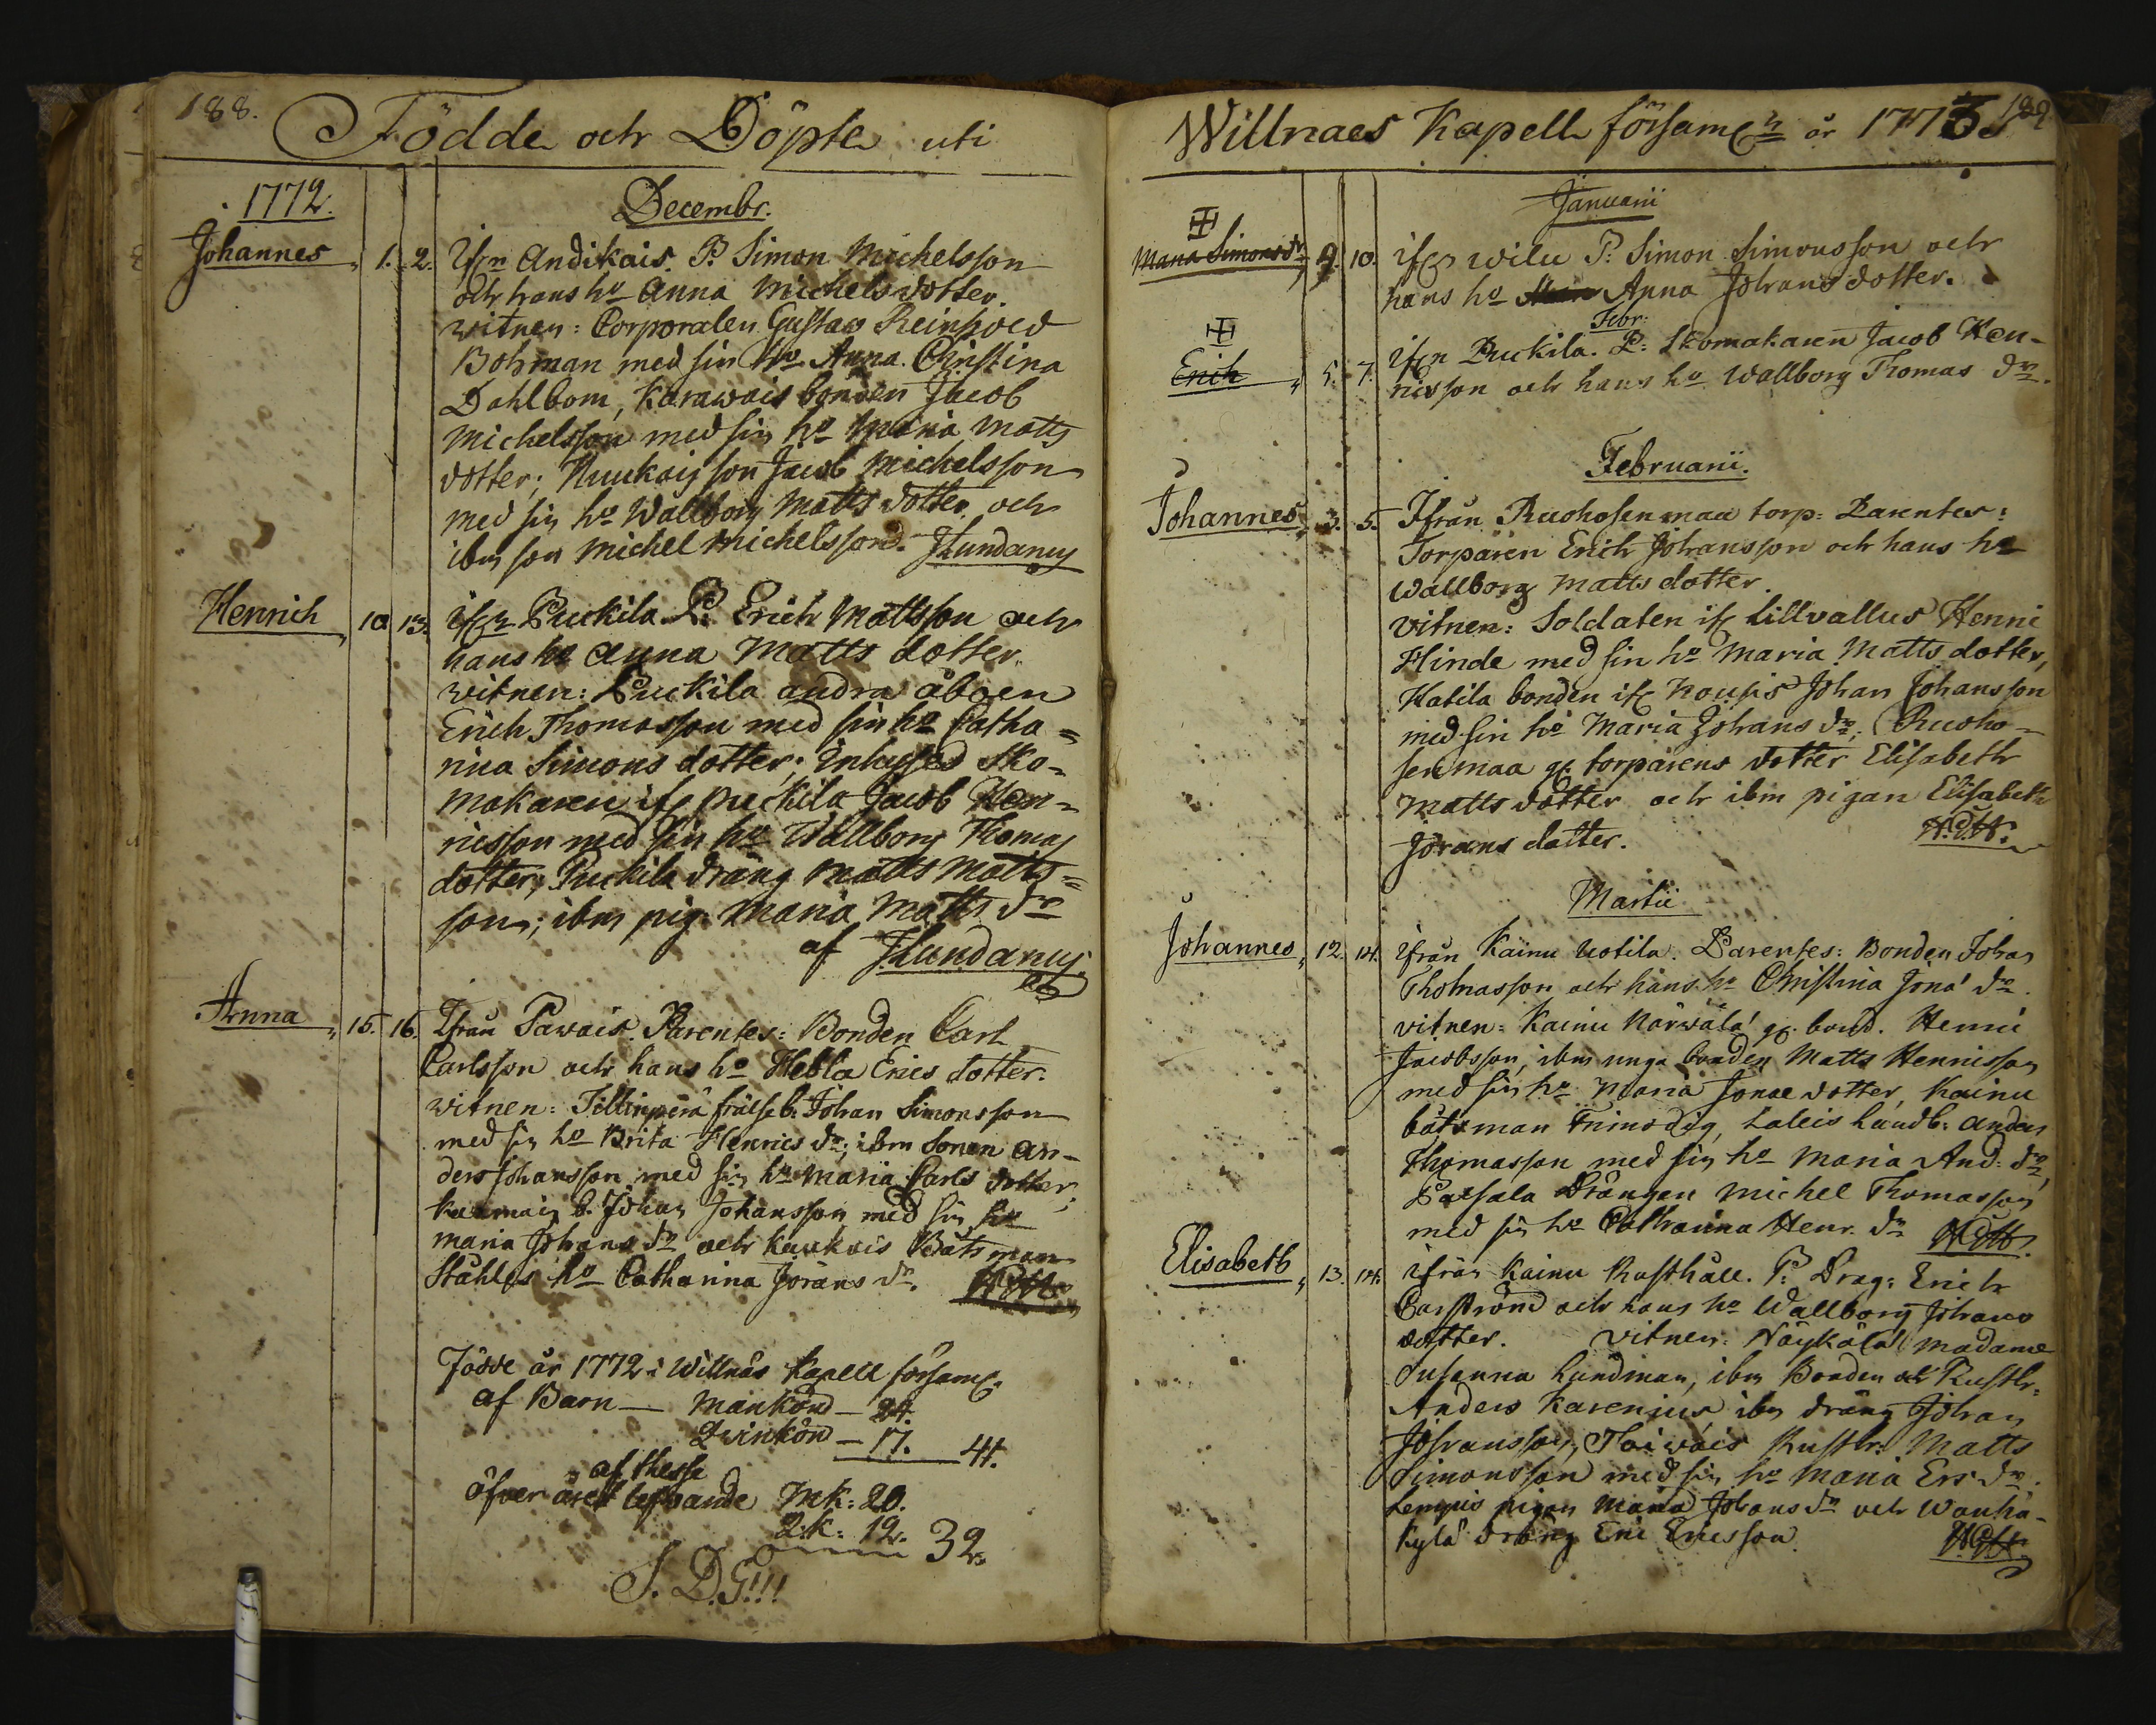 188.
Födde och Döpte uti
1772.
Decembr.
Johannes 1. 2. ifrn Andikais. P. Simon Michelsson
och hans ho Anna Michelsdotter.
witnen: Corporalen Gustav Reinhold
Bohman med sin ho Anna Christina
Dahlbom, Karawais bonden Jacob
Michelsson med sin ho Maria Matts
dotter; son Jacob Michelsson
med sin ho Wallborg Matts dotter och
ibm son Michel Michelsson. JLundanus
Henrich 10. 13. ifrn Puckila P: Erich Mattsson och
hans ho Anna Matts dotter.
witnen: Puckila andra åboen
Erich Thomasson med sin ho Catha=
rina Simons dotter; Inhyses Sko=
makaren if Puckila Jacob Hen=
ricsson med sin ho Wallborg Thomas
dotter; Puckila dräng Matts Matts=
son; ibm pig: Maria Matts dr
af JLundanus
Anna 15. 16. Ifrån Pawais. Parentes: Bonden Carl
Carlsson och hans ho Hebla Erics dotter.
witnen: frälseb: Johan Simonsson
med sin ho Brita Henrics dr; ibm Sonen An-
ders Johansson med sin ho Maria Carls dotter;
b. Johan Johansson med sin ho
Maria Johans dr och Båtsman
Ståhles ho Catharina Jörans dr.
Födde år 1772 i Willnäs Kapell församl:
af Barn — Mankönd — 24.
Qvinkönd — 17. 41.
af thesse
öfver året lefvande Mk: 20.
Q.k: 12. 32.
S. D. G!!!
Willnaes Kapell församl:n år 1773. 189
Januarii
Maria Simonsdr 9. 10. ifrn Wilu P: Simon Simonsson och
hans ho Anna Johans dotter.
Febr:
Erich 5. 7. ifrn Puckila. P: Skomakaren Jacob Hen-
ricsson och hans ho Wallborg Thomas dr.
Februarii.
Johannes 3. 5. Ifrån Ruohosenmaa torp: Parentes:
Torparen Erich Johansson och hans ho
Wallborg Matts dotter.
Vitnen: Soldaten if Lillvallus Henric
Hinde med sin ho Maria Matts dotter,
Katila bonden if Nousis Johan Johansson
med sin ho Maria Johans dr; Ruoho-
senmaa torparens dotter Elisabeth
Matts dotter och ibm pigan Elisabeth
Jörans dotter.
Martii
Johannes 12. 14. ifrån Kainu Uotila. Parentes: Bonden Johan
Thomasson och hans ho Christina Jona dr.
vitnen: Kainu bond. Henric
Jacobsson, ibm unga bonden Matts Henricsson
med sin ho Maria Jonae dotter, Kainu
båtsman Frimodig, Laleis landb: Anders
Thomasson med sin ho Maria And: dr,
drängen Michel Thomasson
med sin ho Catharina Henr. dr
Elisabeth 13. 14. ifrån Kainu Rusthåll. P: Drag: Erich
och hans ho Wallborg Johans
dotter. Vitnen: Madame
Susanna Lundman, ibm Bonden och Rusth:
Anders Karenius ibm dräng Johan
Johansson, Rusth: Matts
Simonsson med sin ho Maria Ers dr.
pigan Maria Johans dr och Wanha-
kylä dräng Eric Ericsson.